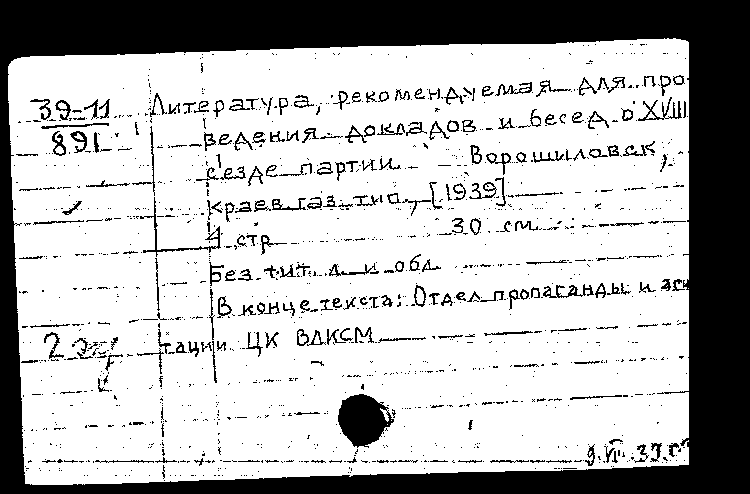 39-11
891
Литература, рекомендуемая для про-
ведения докладов и бесед о XVIII
с'езде партии Ворошиловск,
краев. газ. тип., [1939]
4 стр 30 см
Без тит. л. и обл
В конце текста: Отдел пропаганды и аги
тации ЦК ВЛКСМ
2 экз